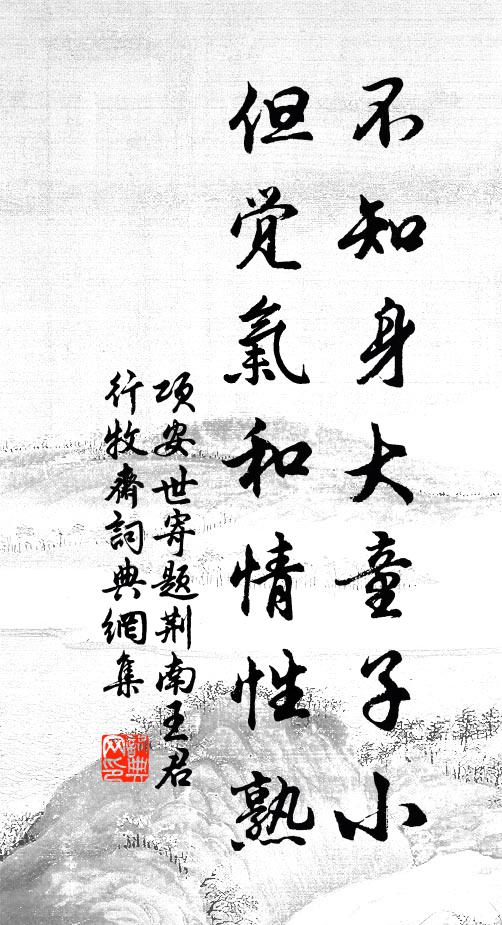 不知身大童子小
但觉氣和情性熟
项安世寄题荆南王君
行牧齋詞典網集
詞典
网印